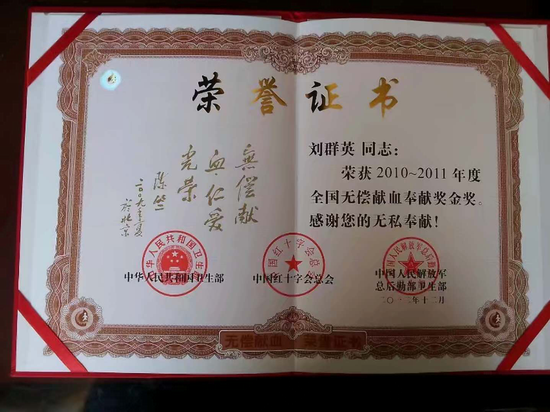 荣誉证书
刘群英 同志:
荣获2010~2011年度
全国无偿献血奉献奖金奖。
感谢您的无私奉献!
無偿献
血仁爱
光荣
陈竺
二〇〇九年夏
于北京
中华人民共和国卫生部
中国红十字会总会
中国人民解放军
总后勤部卫生部
二〇一二年十二月
无偿献血 荣誉证书